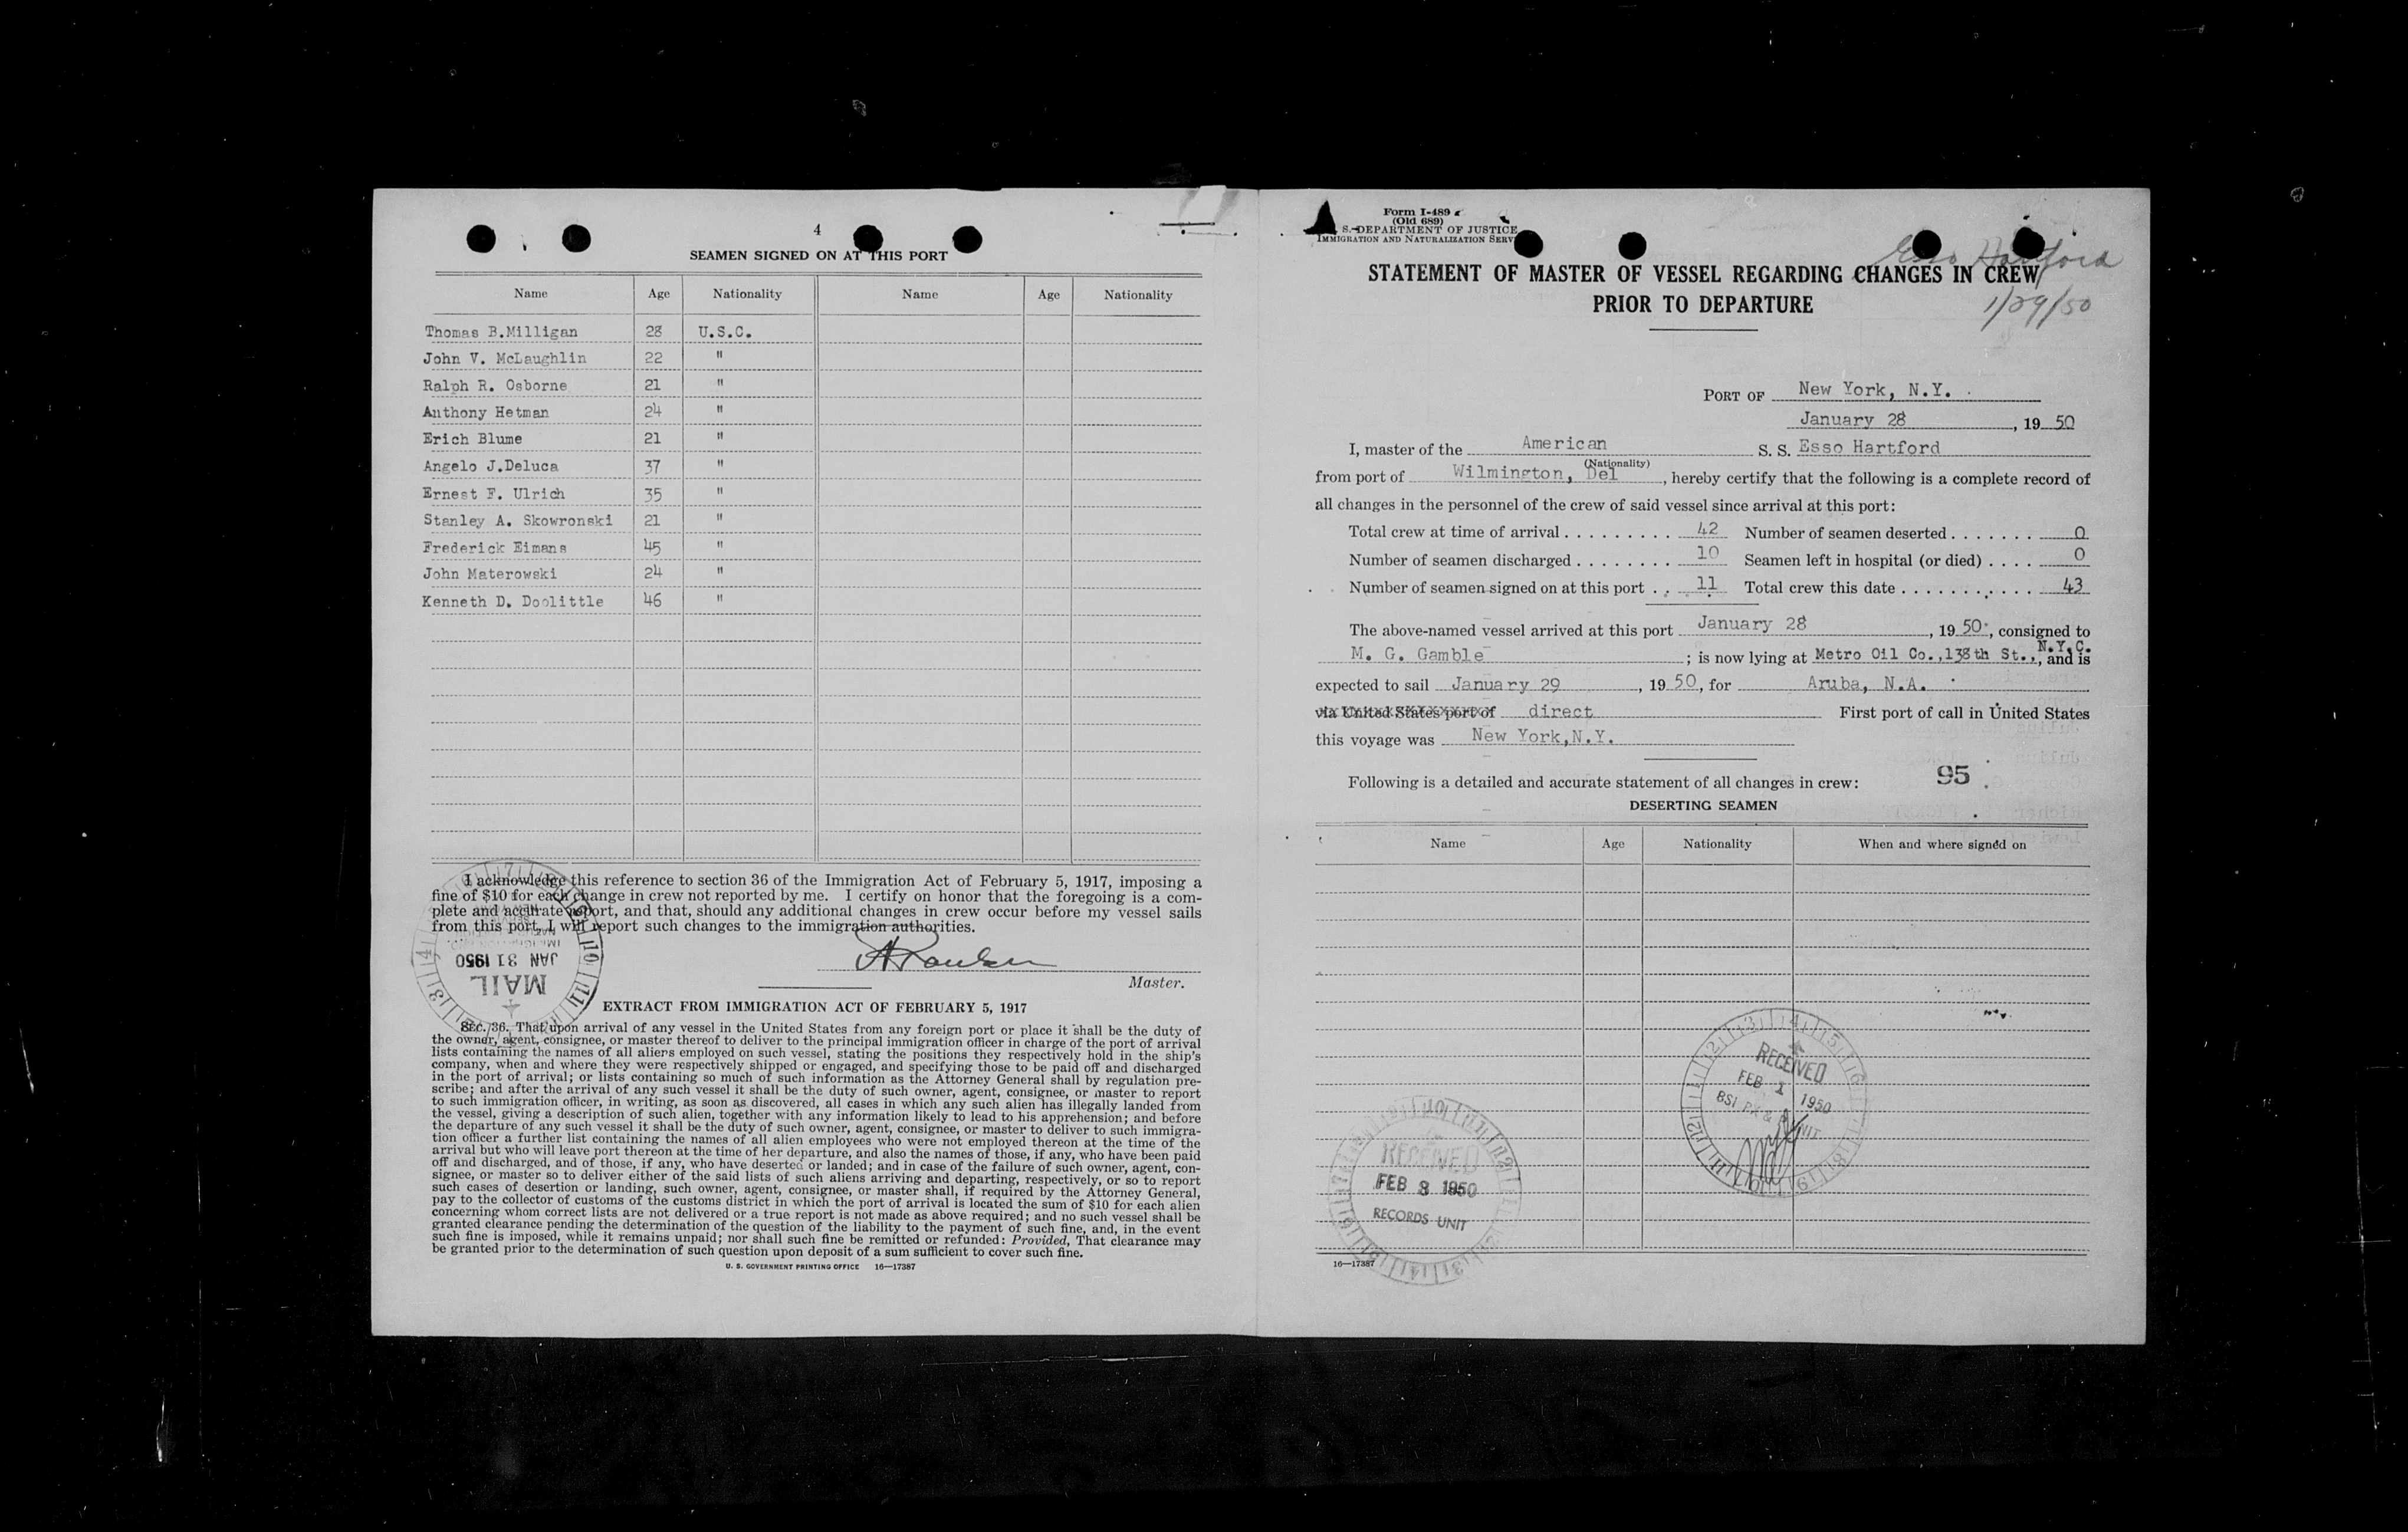 4
SEAMEN SIGNED ON AT THIS PORT
Name Age Nationality Name Age Nationality
Thomas B.Milligan 28 U.S.C.
John V. McLaughlin 22 "
Ralph R. Osborne 21 "
Anthony Hetman 24 "
Erich Blume 21 "
Angelo J.Deluca 37 "
Ernest F. Ulrich 35 "
Stanley A. Skowronski 21 "
Frederick Eimans 45 "
John Materowski 24 "
Kenneth D. Doolittle 46 "
I acknowledge this reference to section 36 of the Immigration Act of February 5, 1917, imposing a
fine of $10 for each change in crew not reported by me. I certify on honor that the foregoing is a com-
plete and accurate report, and that, should any additional changes in crew occur before my vessel sails
from this port, I will report such changes to the immigration authorities.
Master.
JAN 31 1950
MAIL
EXTRACT FROM IMMIGRATION ACT OF FEBRUARY 5, 1917
SEC. 36. That upon arrival of any vessel in the United States from any foreign port or place it shall be the duty of
the owner, agent, consignee, or master thereof to deliver to the principal immigration officer in charge of the port of arrival
lists containing the names of all aliens employed on such vessel, stating the positions they respectively hold in the ship's
company, when and where they were respectively shipped or engaged, and specifying those to be paid off and discharged
in the port of arrival; or lists containing so much of such information as the Attorney General shall by regulation pre-
scribe; and after the arrival of any such vessel it shall be the duty of such owner, agent, consignee, or master to report
to such immigration officer, in writing, as soon as discovered, all cases in which any such alien has illegally landed from
the vessel, giving a description of such alien, together with any information likely to lead to his apprehension; and before
the departure of any such vessel it shall be the duty of such owner, agent, consignee, or master to deliver to such immigra-
tion officer a further list containing the names of all alien employees who were not employed thereon at the time of the
arrival but who will leave port thereon at the time of her departure, and also the names of those, if any, who have been paid
off and discharged, and of those, if any, who have deserted or landed; and in case of the failure of such owner, agent, con-
signee, or master so to deliver either of the said lists of such aliens arriving and departing, respectively, or so to report
such cases of desertion or landing, such owner, agent, consignee, or master shall, if required by the Attorney General,
pay to the collector of customs of the customs district in which the port of arrival is located the sum of $10 for each alien
concerning whom correct lists are not delivered or a true report is not made as above required; and no such vessel shall be
granted clearance pending the determination of the question of the liability to the payment of such fine, and, in the event
such fine is imposed, while it remains unpaid; nor shall such fine be remitted or refunded: Provided, That clearance may
be granted prior to the determination of such question upon deposit of a sum sufficient to cover such fine.
U. S. GOVERNMENT PRINTING OFFICE 16—17387
Form I-489
(Old 689)
S. DEPARTMENT OF JUSTICE
IMMIGRATION AND NATURALIZATION SERV
Esso Hartford
1/29/50
STATEMENT OF MASTER OF VESSEL REGARDING CHANGES IN CREW
PRIOR TO DEPARTURE
PORT OF New York, N.Y.
January 28, 19 50
I, master of the American S. S. Esso Hartford
(Nationality)
from port of Wilmington, Del, hereby certify that the following is a complete record of
all changes in the personnel of the crew of said vessel since arrival at this port:
Total crew at time of arrival . . . . . . . . . . 42 Number of seamen deserted . . . . . . . 0
Number of seamen discharged . . . . . . . . 10 Seamen left in hospital (or died) . . . . 0
Number of seamen signed on at this port . . 11 Total crew this date . . . . . . . . . . . . 43
The above-named vessel arrived at this port January 28, 19 50, consigned to
M. G. Gamble; is now lying at Metro Oil Co.,138th St., N.Y.C., and is
expected to sail January 29, 19 50, for Aruba, N.A.
via United States port of direct First port of call in United States
this voyage was New York,N.Y.
Following is a detailed and accurate statement of all changes in crew: 95
DESERTING SEAMEN
Name Age Nationality When and where signed on
RECEIVED
FEB 1 1950
RECEIVED
FEB 3 1950
RECORDS UNIT
16—17387